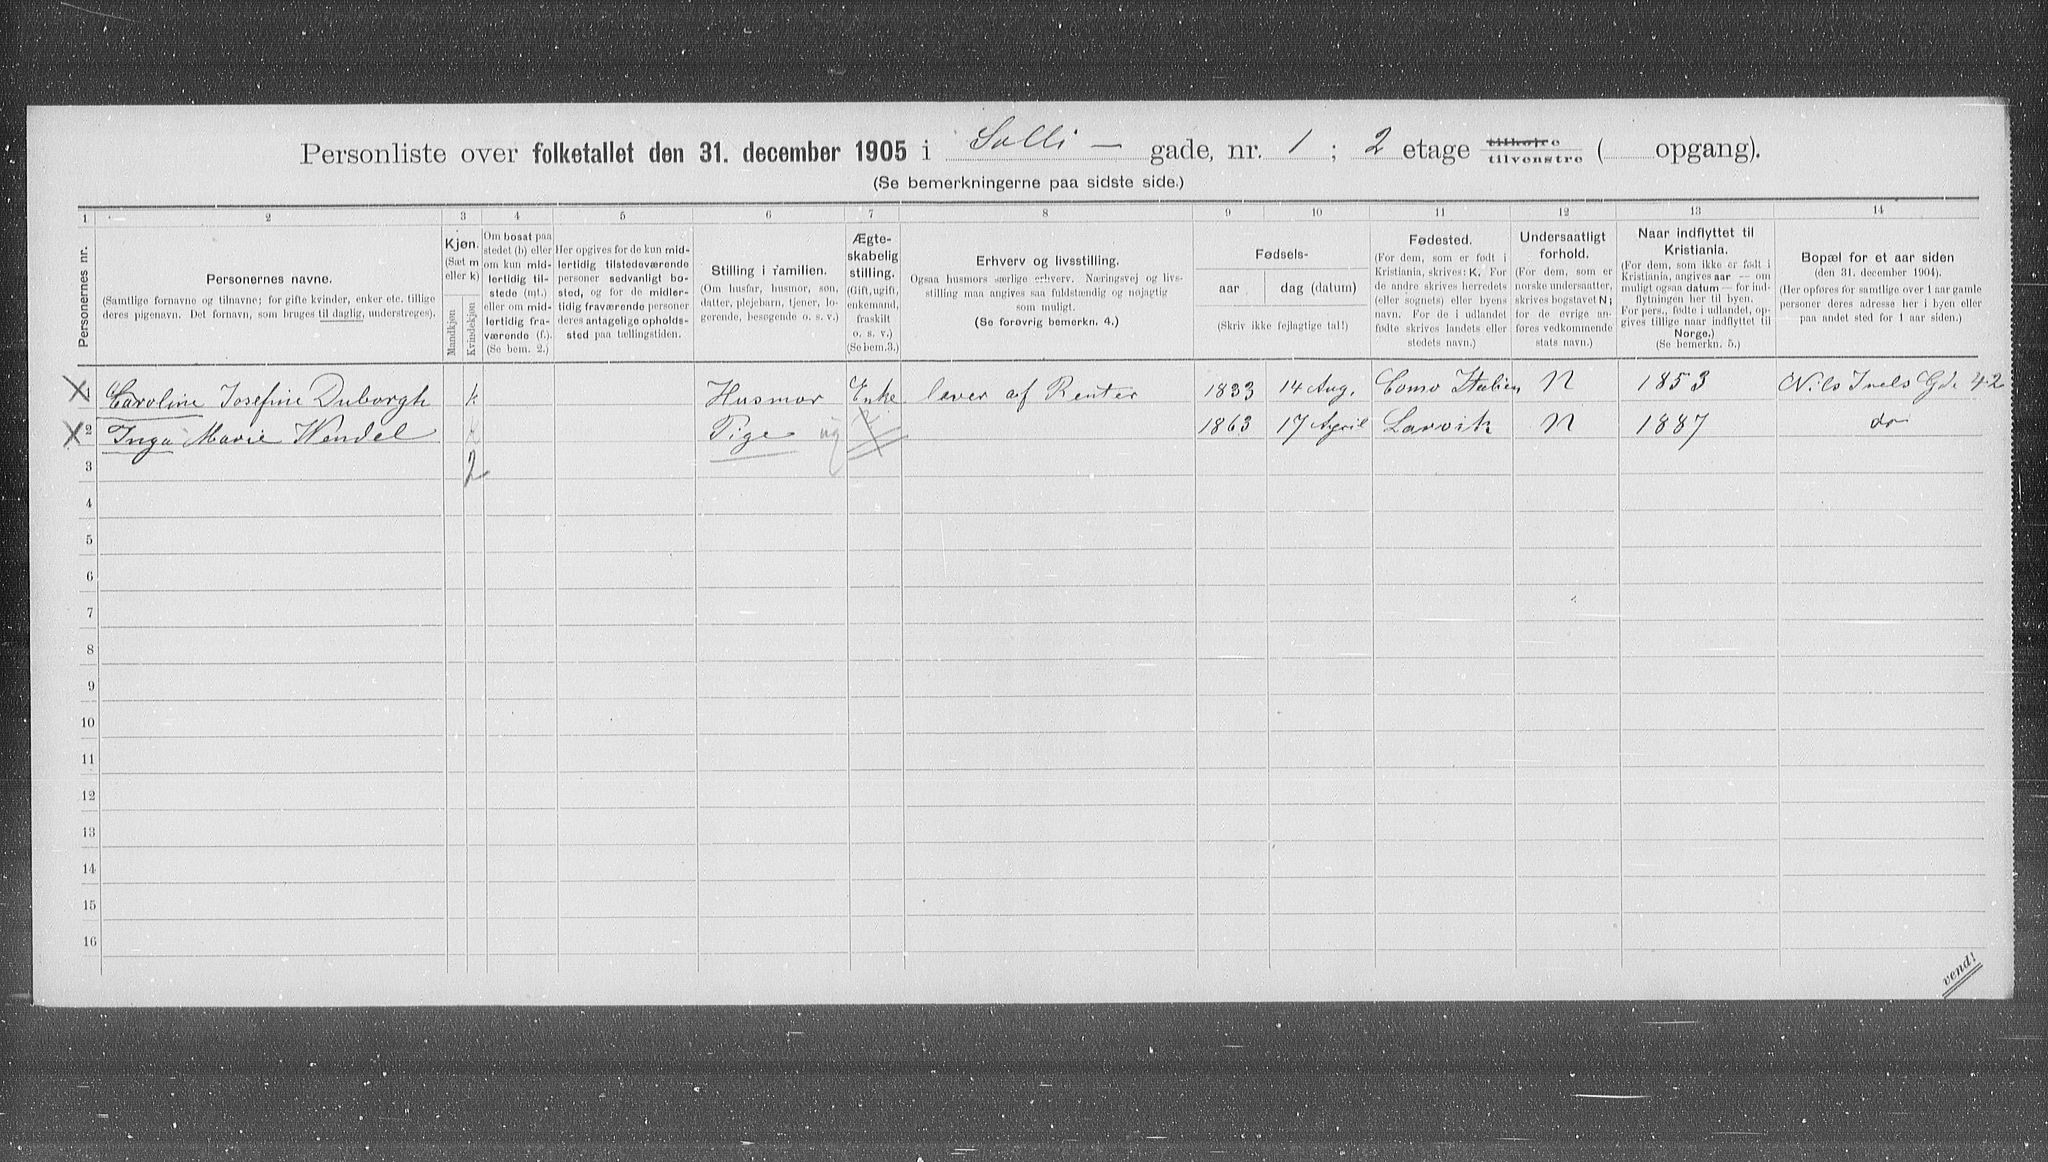 Personliste over folketallet den 31. december 1905 i Solli — gade, nr. 1 ; 2 etage tilhøjre tilvenstre ( opgang).
(Se bemerkningerne paa sidste side.)
1 2 3 4 5 6 7 8 9 10 11 12 13 14
Personernes nr.
Personernes navne.
(Samtlige fornavne og tilnavne; for gifte kvinder, enker etc. tillige
deres pigenavn. Det fornavn, som bruges til daglig, understreges).
Kjøn.
(Sæt m
eller k)
Mandkjøn
Kvindekjøn
Om bosat paa
stedet (b) eller
om kun mid-
lertidig til-
stede (mt.)
eller om mid-
lertidig fra-
værende (f.).
(Se bem. 2.)
Her opgives for de kun mid-
lertidig tilstedeværende
personer sedvanligt bo-
sted, og for de midler-
tidig fraværende personer
deres antagelige opholds-
sted paa tællingstiden.
Stilling i familien.
(Om husfar, husmor, søn,
datter, plejebarn, tjener, lo-
gerende, besøgende o. s. v.)
Ægte-
skabelig
stilling.
(Gift, ugift,
enkemand,
fraskilt
o. s. v.)
(Se bem.3.)
Erhverv og livsstilling.
Ogsaa husmors særlige erhverv. Næringsvej og livs-
stilling maa angives saa fuldstændig og nøjagtig
som muligt.
(Se forøvrig bemerkn. 4.)
Fødsels-
aar dag (datum)
(Skriv ikke fejlagtige tal!)
Fødested.
(For dem, som er født i
Kristiania, skrives: K. For
de andre skrives herredets
(eller sognets) eller byens
navn. For de i udlandet
fødte skrives landets eller
stedets navn.)
Undersaatligt
forhold.
(For dem, som er
norske undersaatter,
skrives bogstavet N;
for de øvrige an-
føres vedkommende
stats navn.)
Naar indflyttet til
Kristiania.
(For dem, som ikke er født i
Kristiania, angives aar — om
muligt ogsaa datum — for ind-
flytningen her til byen.
For pers., fødte i udlandet, op-
gives tillige naar indflyttet til
Norge.)
(Se bemerkn. 5.)
Bopæl for et aar siden
(den 31. december 1904).
(Her opføres for samtlige over 1 aar gamle
personer deres adresse her i byen eller
paa andet sted for 1 aar siden.)
1 Caroline Josefine Duborgh k Husmor Enke lever af Renter 1833 14 Aug. Como Italien N 1853 Nils Juels Gde 42
2 Inga Marie Wendel k Pige ug 1863 17 April Larvik N 1887 do
3 2
4
5
6
7
8
9
10
11
12
13
14
15
16
vend!